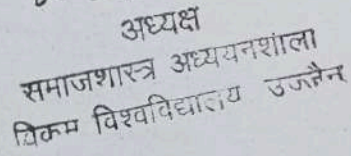 अध्यक्ष
समाजशास्त्र अध्ययनशाला
विकम विश्वविद्यालय उज्जैन